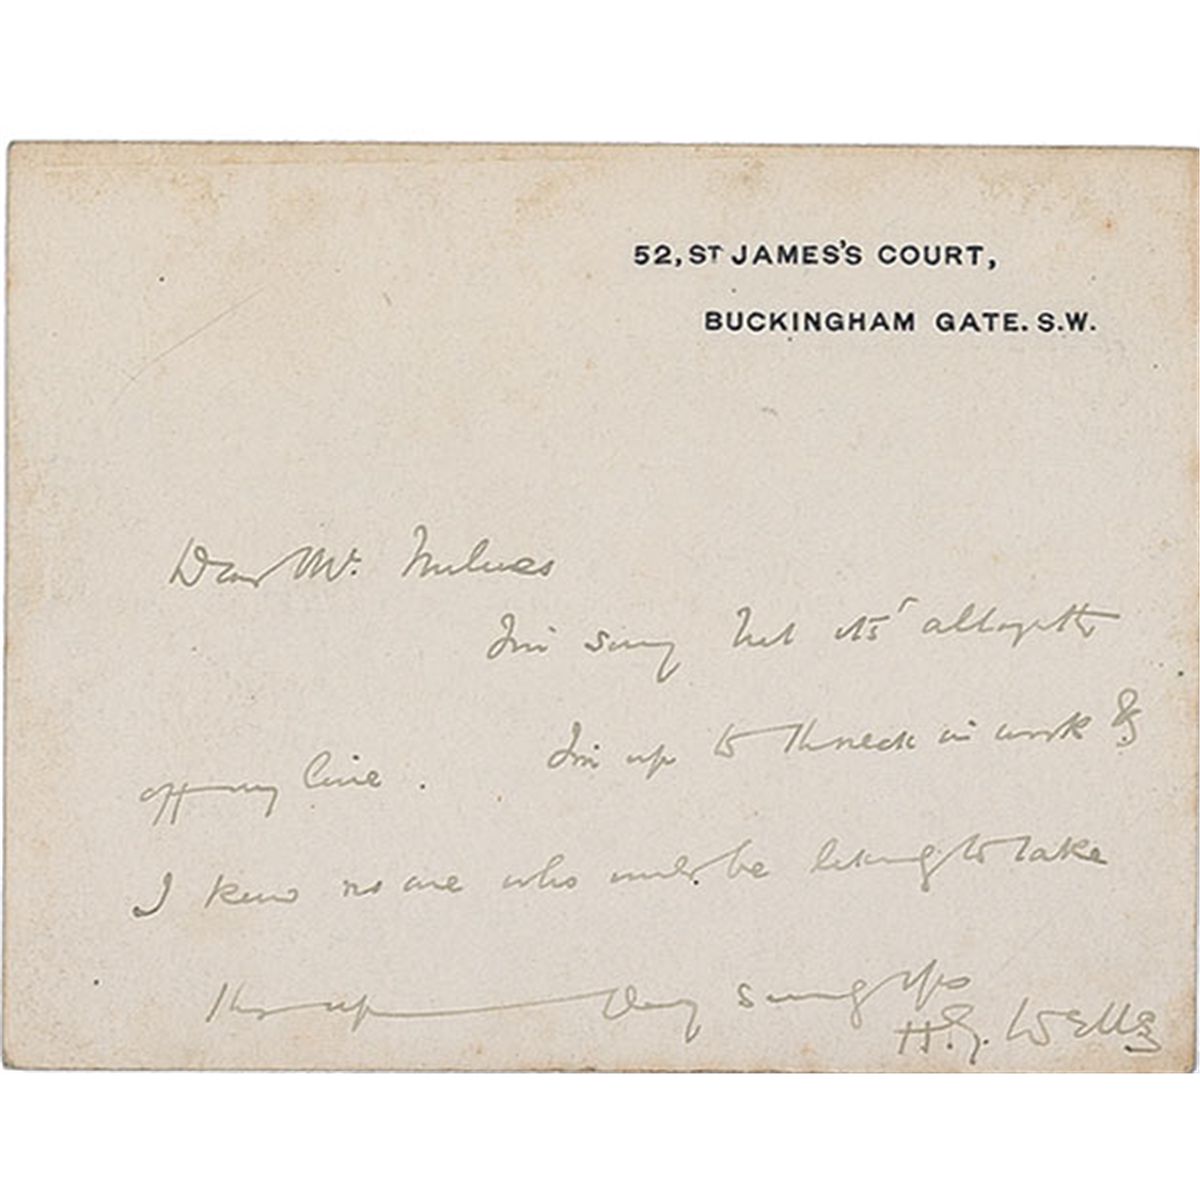 52, ST JAMES'S COURT,
BUCKINGHAM GATE. S.W.
Dear Mr.
I'm sorry but its' altogether
off my line. I'm up to th neck in work &
I know no one who would be likely to take
this up Very sincerely yrs
H.G. Wells